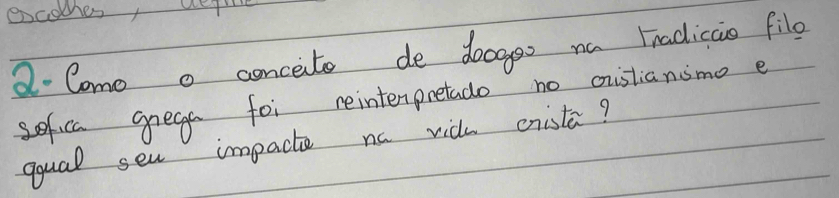 escolhes, define
2- Como o conceito de Loogos na tradicção filo
sofica grega foi reinterpretado no cristianismo e
qqual seu impacto na vida cristã?